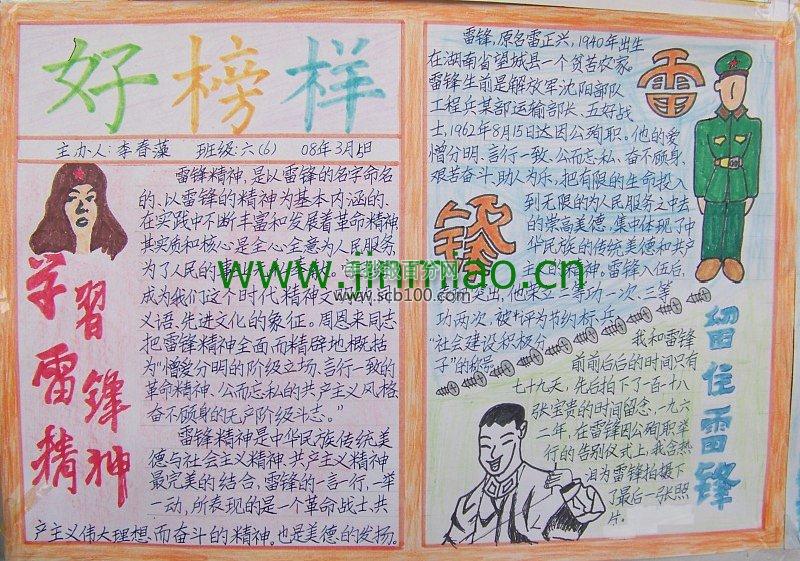 好榜样
主办人:李春藻 班级:六(6) 08年3月5日
雷锋精神,是以雷锋的名字命名
的、以雷锋的精神为基本内涵的、
在实践中不断丰富和发展着革命精神
其实质和核心是全心全意为人民服务,
为了人民的事
成为我们这个时代精神文
义语、先进文化的象征。周恩来同志
把雷锋精神全面而精辟地概括
为“憎爱分明的阶级立场、言行一致的
革命精神、公而忘私的共产主义风格,
奋不顾身的无产阶级斗志。”
雷锋精神是中华民族传统美
德与社会主义精神、共产主义精神
最完美的结合,雷锋的一言行,一举
一动,所表现的是一个革命战士,共
产主义伟大理想、而奋斗的精神。也是美德的发扬。
学習
雷锋
精神
雷锋,原名雷正兴,1940年出生
在湖南省望城县一个贫苦农家。
雷锋生前是解放军沈阳部队
工程兵某部运输部长、五好战
士,1962年8月15日达因公殉职。他的爱
憎分明、言行一致、公而忘私、奋不顾身、
艰苦奋斗、助人为乐,把有限的生命投入
到无限的为人民服务之中去
的崇高美德,集中体现了中
华民族的传统美德和共产
主义的精神,雷锋入伍后,
突出,他荣立二等功一次、三等
功两次,被评为节约标兵
“社会建设积极分
子”的称号
雷
锋
我和雷锋
前前后后的时间只有
七十九天,先后拍下了一百一十八
张宝贵的时间留念,一九六
二年,在雷锋因公殉职举
行的告别仪式上,我含热
泪为雷锋拍摄下
了最后一张照
片。
留住雷锋
www.jininiao.cn
手抄报百分网
www.scb100.com